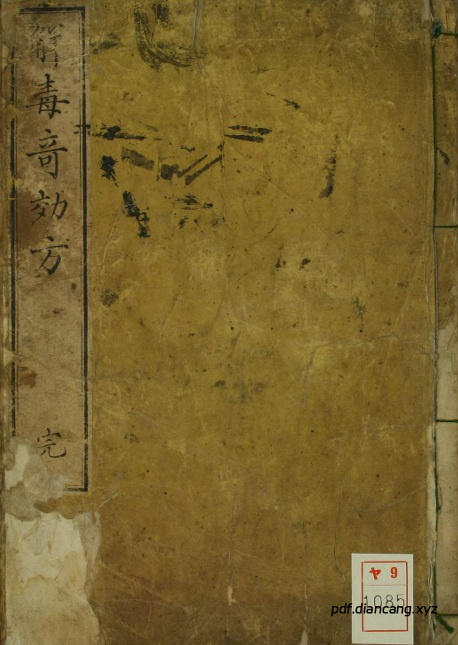 解毒竒効方
完
ヤ9
1085
pdf.diancang.xyz